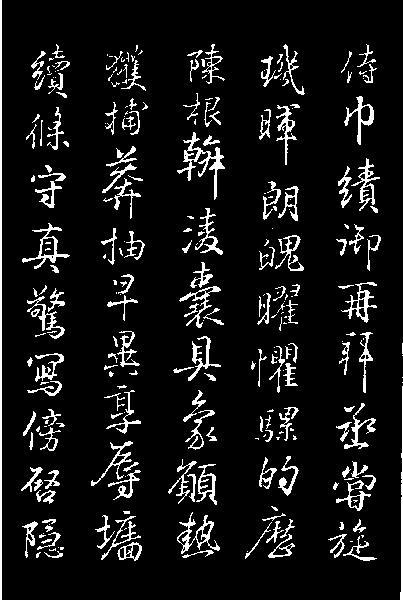 侍巾績御再拜烝嘗旋
璣暉朗魄曜懼騾的歷
陳根斡淩囊具象願熱
獲捕莽抽早異享辱墻
續條守真驚寫傍啓隱